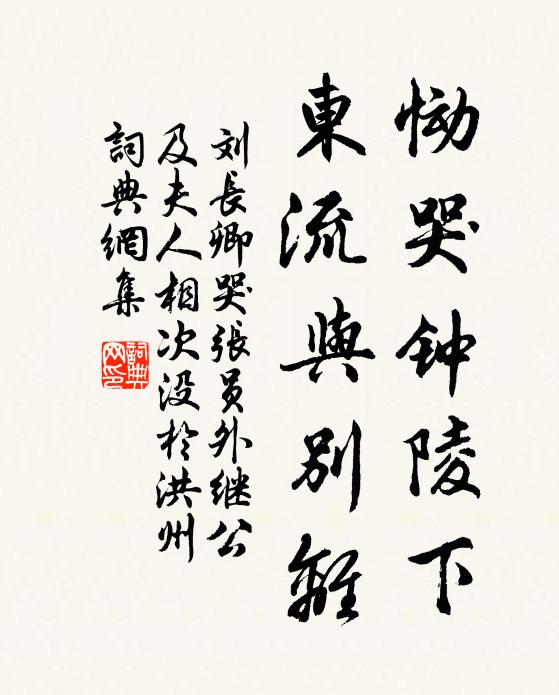 恸哭钟陵下
東流與别離
刘長卿哭張员外继公
及夫人相次没於洪州
詞典網集
詞典网印